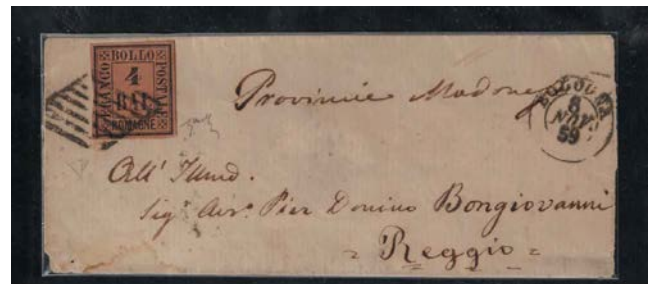 FRANCO BOLLO POSTALE
4
BAI
ROMAGNE
Provincie Modonesi
BOLOGNA
8
NOV.
59
All' Illmo.
Sigr Avvo. Pier Donnino Bongiovanni
= Reggio =